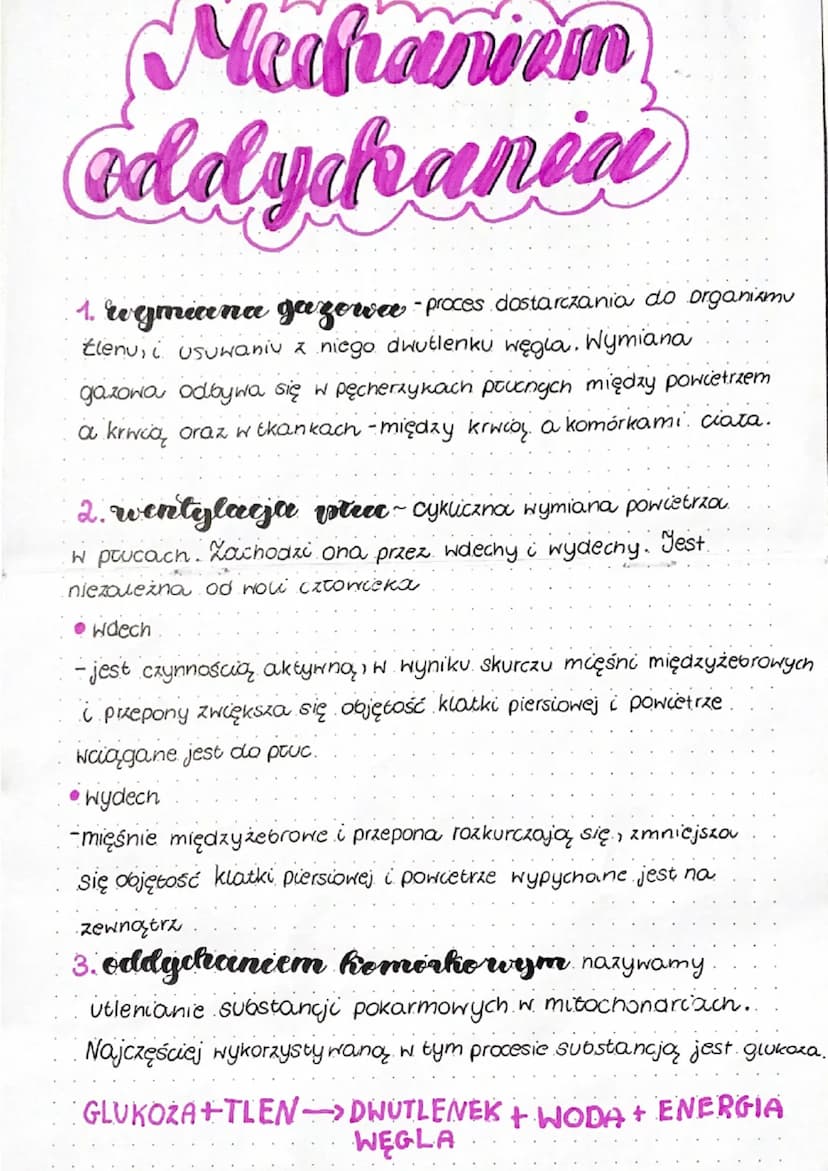 Mechanizm
oddychania
1. wymiana gazowa - proces dostarczania do organizmu
tlenu, i usuwaniu z niego dwutlenku węgla. Wymiana
gazowa odbywa się w pęcherzykach płucnych między powietrzem
a krwią, oraz w tkankach - między krwią, a komórkami ciała.
2. wentylacja płuc - cykliczna wymiana powietrza
w płucach. Zachodzi ona przez wdechy i wydechy. Jest
niezależna od woli człowieka
• wdech
- jest czynnością aktywną, w wyniku skurczu mięśni międzyżebrowych
i przepony zwiększa się objętość klatki piersiowej i powietrze
wciągane jest do płuc.
• wydech
- mięśnie międzyżebrowe i przepona rozkurczają się, zmniejsza
się objętość klatki piersiowej i powietrze wypychane jest na
zewnątrz
3. oddychaniem komórkowym nazywamy
utlenianie substancji pokarmowych w mitochondriach.
Najczęściej wykorzystywaną w tym procesie substancją jest glukoza.
GLUKOZA + TLEN → DWUTLENEK + WODA + ENERGIA
WĘGLA